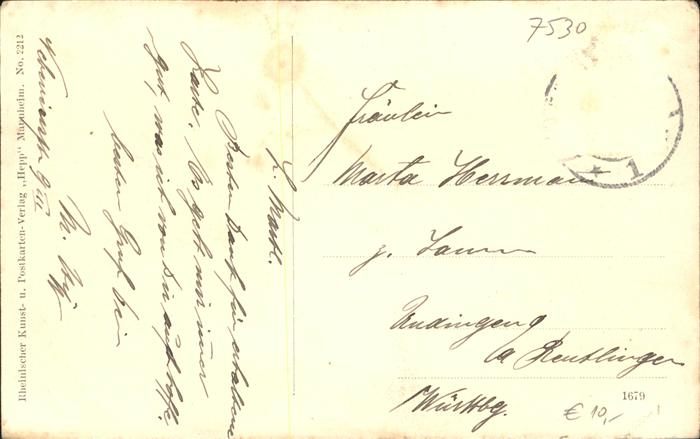 7530
Fräulein
Marta Herrmann
z.
Undingen
Reutlingen
Württbg.
1679
€ 10,-
L. Marta.
Besten Dank für erhaltene
Karte. Es geht mir immer
gut, was ich von Dir auch hoffe.
besten Gruß
M.
Rheinischer Kunst- u. Postkarten-Verlag „Hepp" Mannheim. No. 2212
1